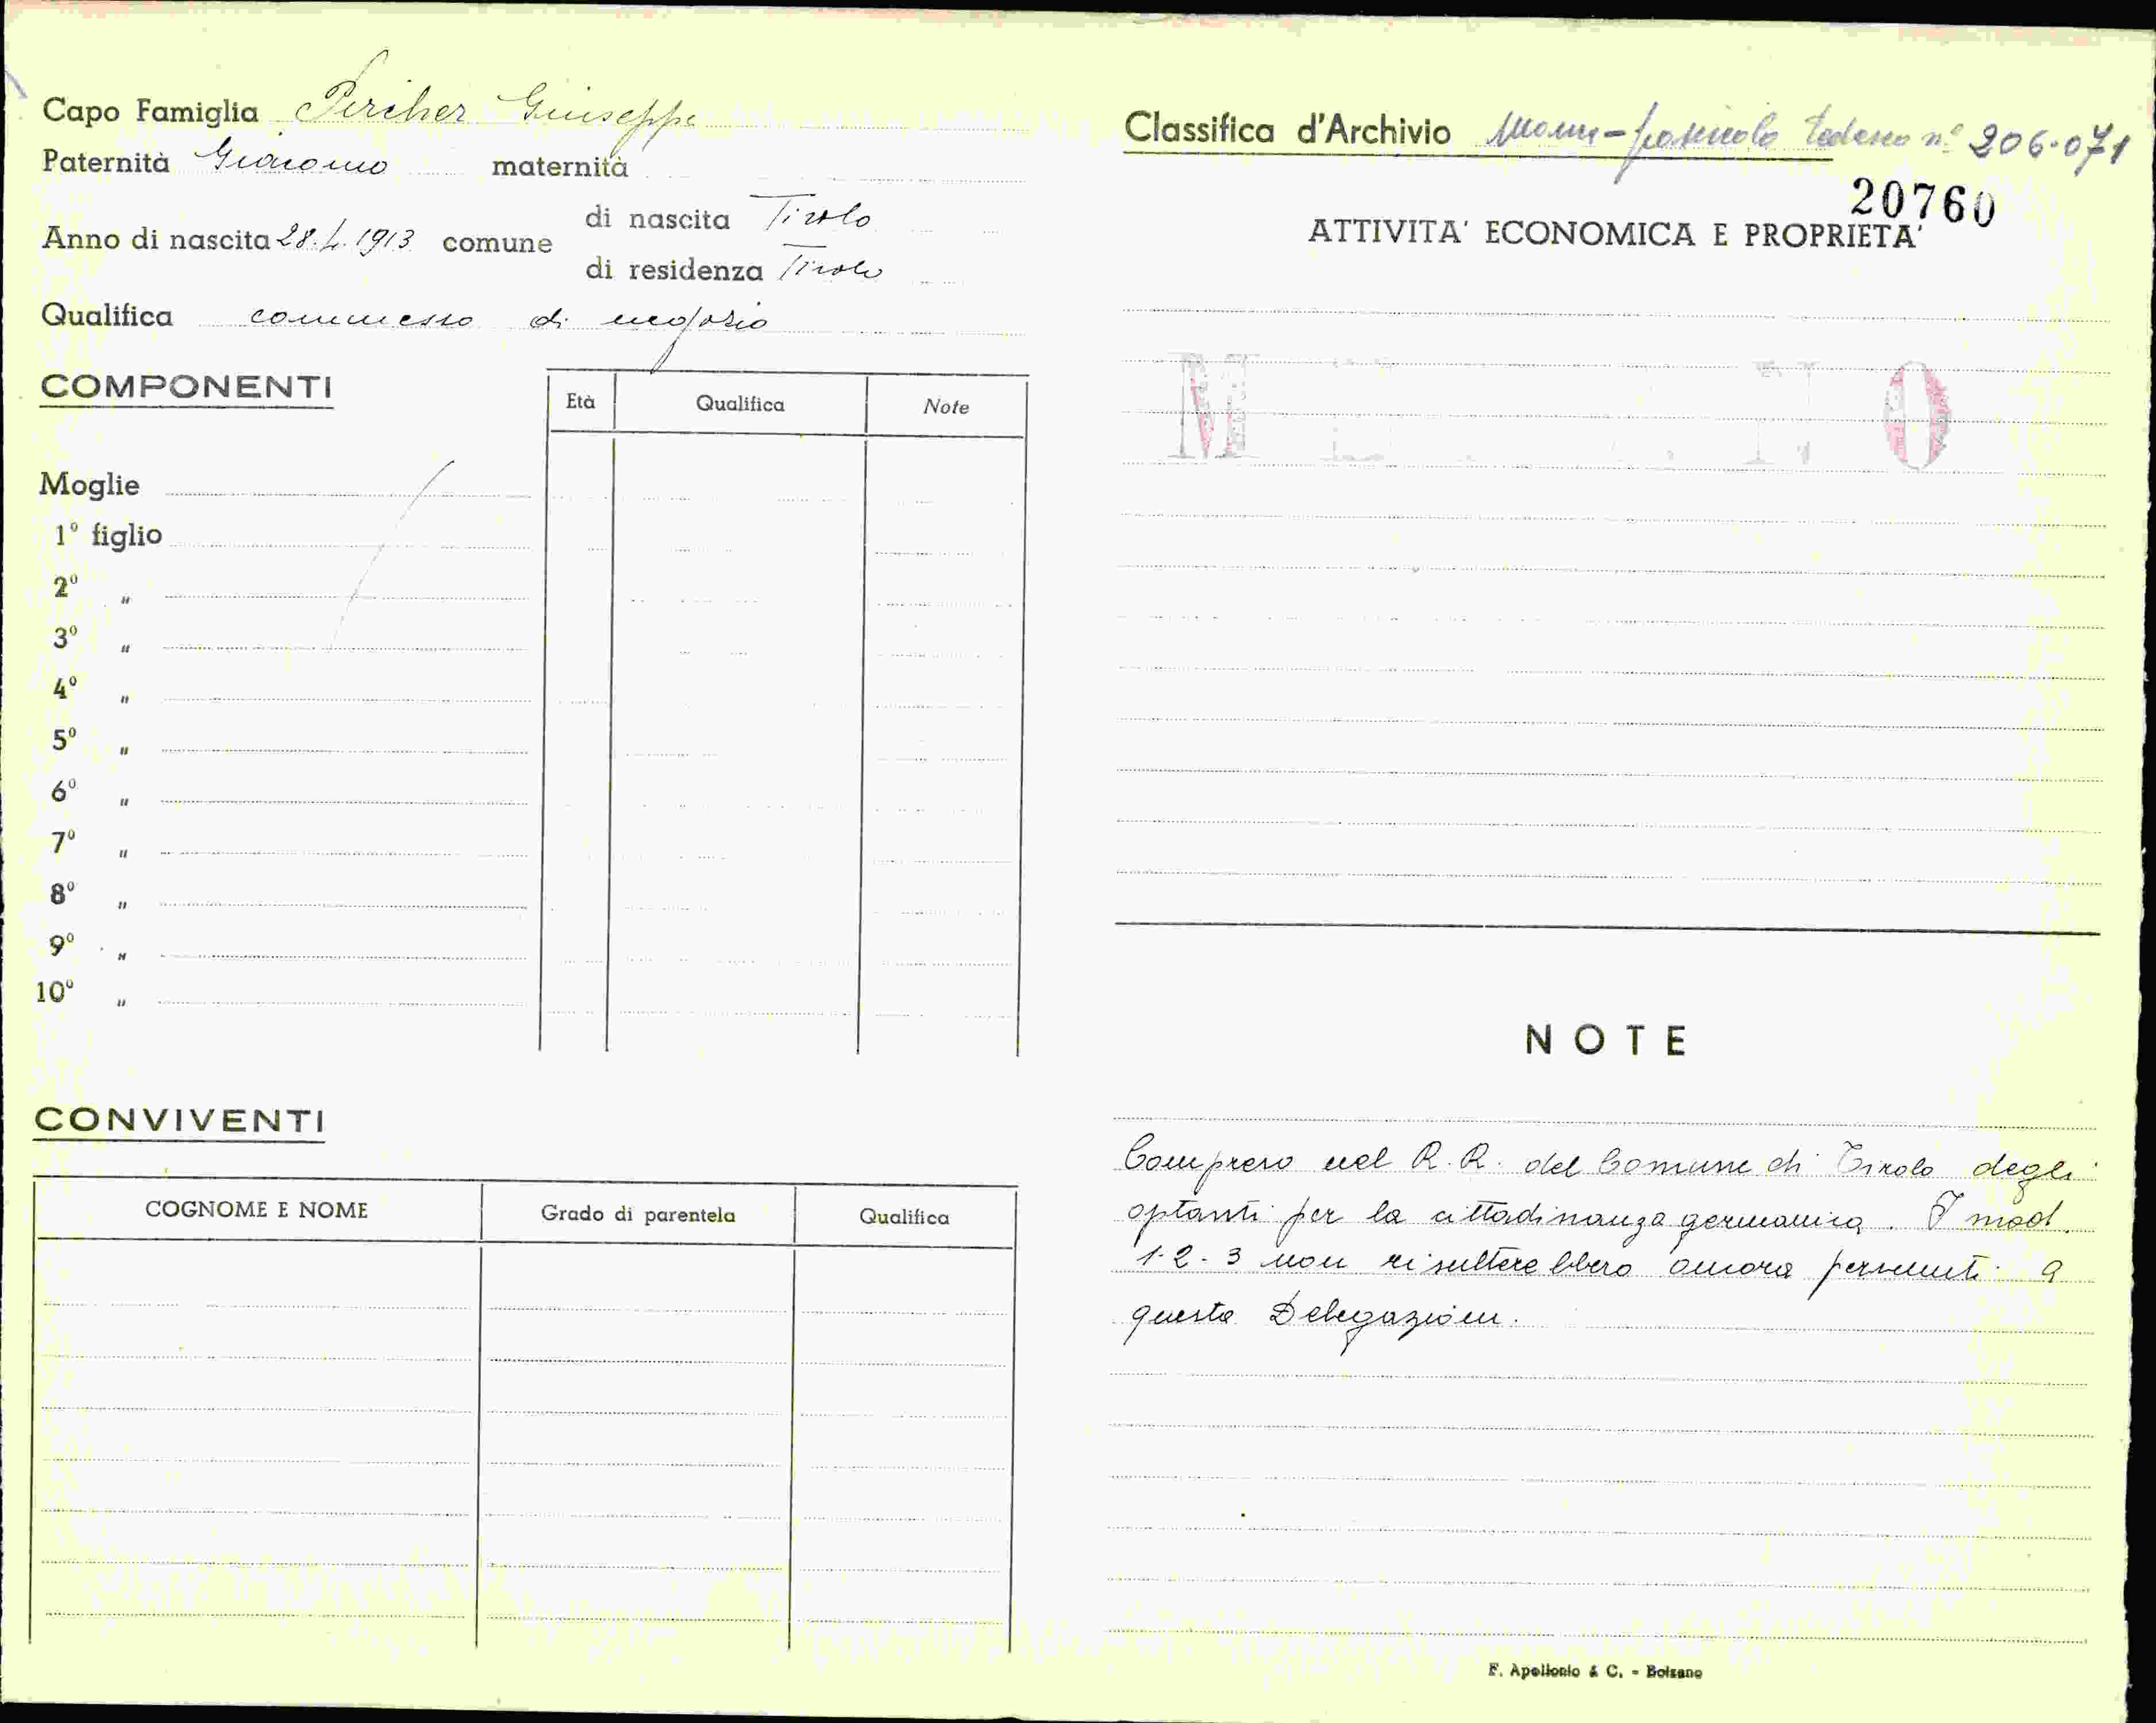 Capo Famiglia Pircher Giuseppe
Paternità Giacomo maternità
Anno di nascita 28.4.1913 comune di nascita Tirolo
di residenza Tirolo
Qualifica commesso di negozio
COMPONENTI
Età Qualifica Note
Moglie
1º figlio
2º "
3º "
4º "
5º "
6º "
7º "
8º "
9º "
10º "
CONVIVENTI
COGNOME E NOME Grado di parentela Qualifica
Classifica d'Archivio fascicolo tedesco nº 206.071
20760
ATTIVITA' ECONOMICA E PROPRIETA'
NOTE
Compreso nel R.R. del Comune di Tirolo degli
optanti per la cittadinanza germanica. I mod.
1-2-3 non risulterebbero ancora pervenuti a
questa Delegazione.
F. Apollonio & C. - Bolzano